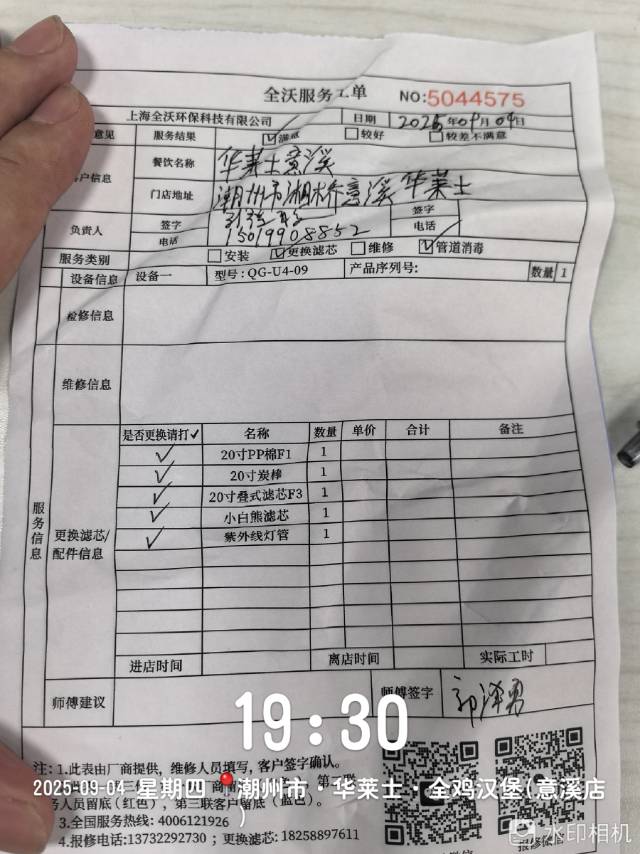 全沃服务工单 NO:5044575
上海全沃环保科技有限公司 日期 2025年09月04日
意见 服务结果 ☑满意 □较好 □较差不满意
户信息 餐饮名称 华莱士意溪
门店地址 潮州市湘桥意溪华莱士
负责人 签字 签字
电话 15019908852 电话
服务类别 □安装 ☑更换滤芯 □维修 ☑管道消毒
设备信息 设备一 型号:QG-U4-09 产品序列号: 数量 1
检修信息
维修信息
服务信息
更换滤芯/配件信息
是否更换请打✓ 名称 数量 单价 合计 备注
✓ 20寸PP棉F1 1
✓ 20寸炭棒 1
✓ 20寸叠式滤芯F3 1
✓ 小白熊滤芯 1
✓ 紫外线灯管 1
进店时间 离店时间 实际工时
师傅建议 师傅签字
19:30
注:1.此表由厂商提供,维修人员填写,客户签字确认。
2025-09-04 星期四 潮州市·华莱士·全鸡汉堡(意溪店)
务人员留底(红色),第三联客户留底(蓝色)。
3.全国服务热线:4006121926
4.报修电话:13732292730;更换滤芯:18258897611
水印相机